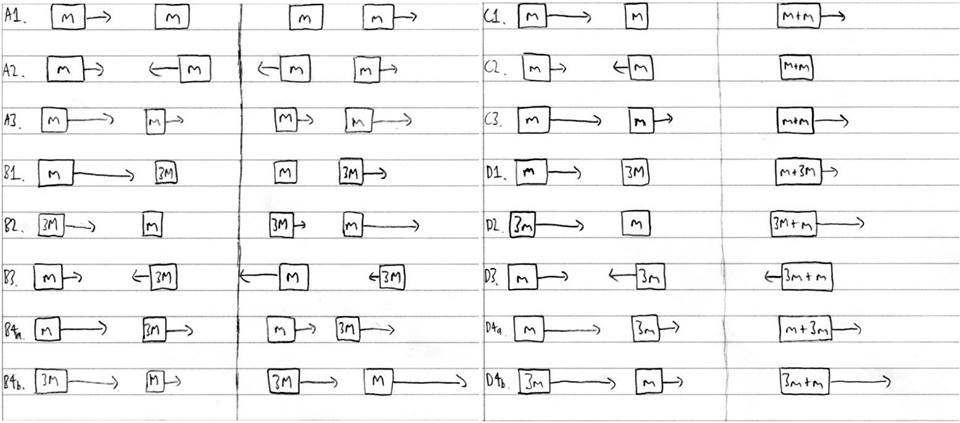 A1. m m m m
A2. m m m m
A3. m m m m
B1. m 3M m 3M
B2. 3M m 3M m
B3. m 3M m 3M
B4a. m 3M m 3M
B4b. 3M M 3M m
C1. m m m+m
C2. m m m+m
C3. m m m+m
D1. m 3M m+3M
D2. 3m m 3m+m
D3. m 3m 3m+m
D4a. m 3m m+3m
D4b. 3m m 3m+m